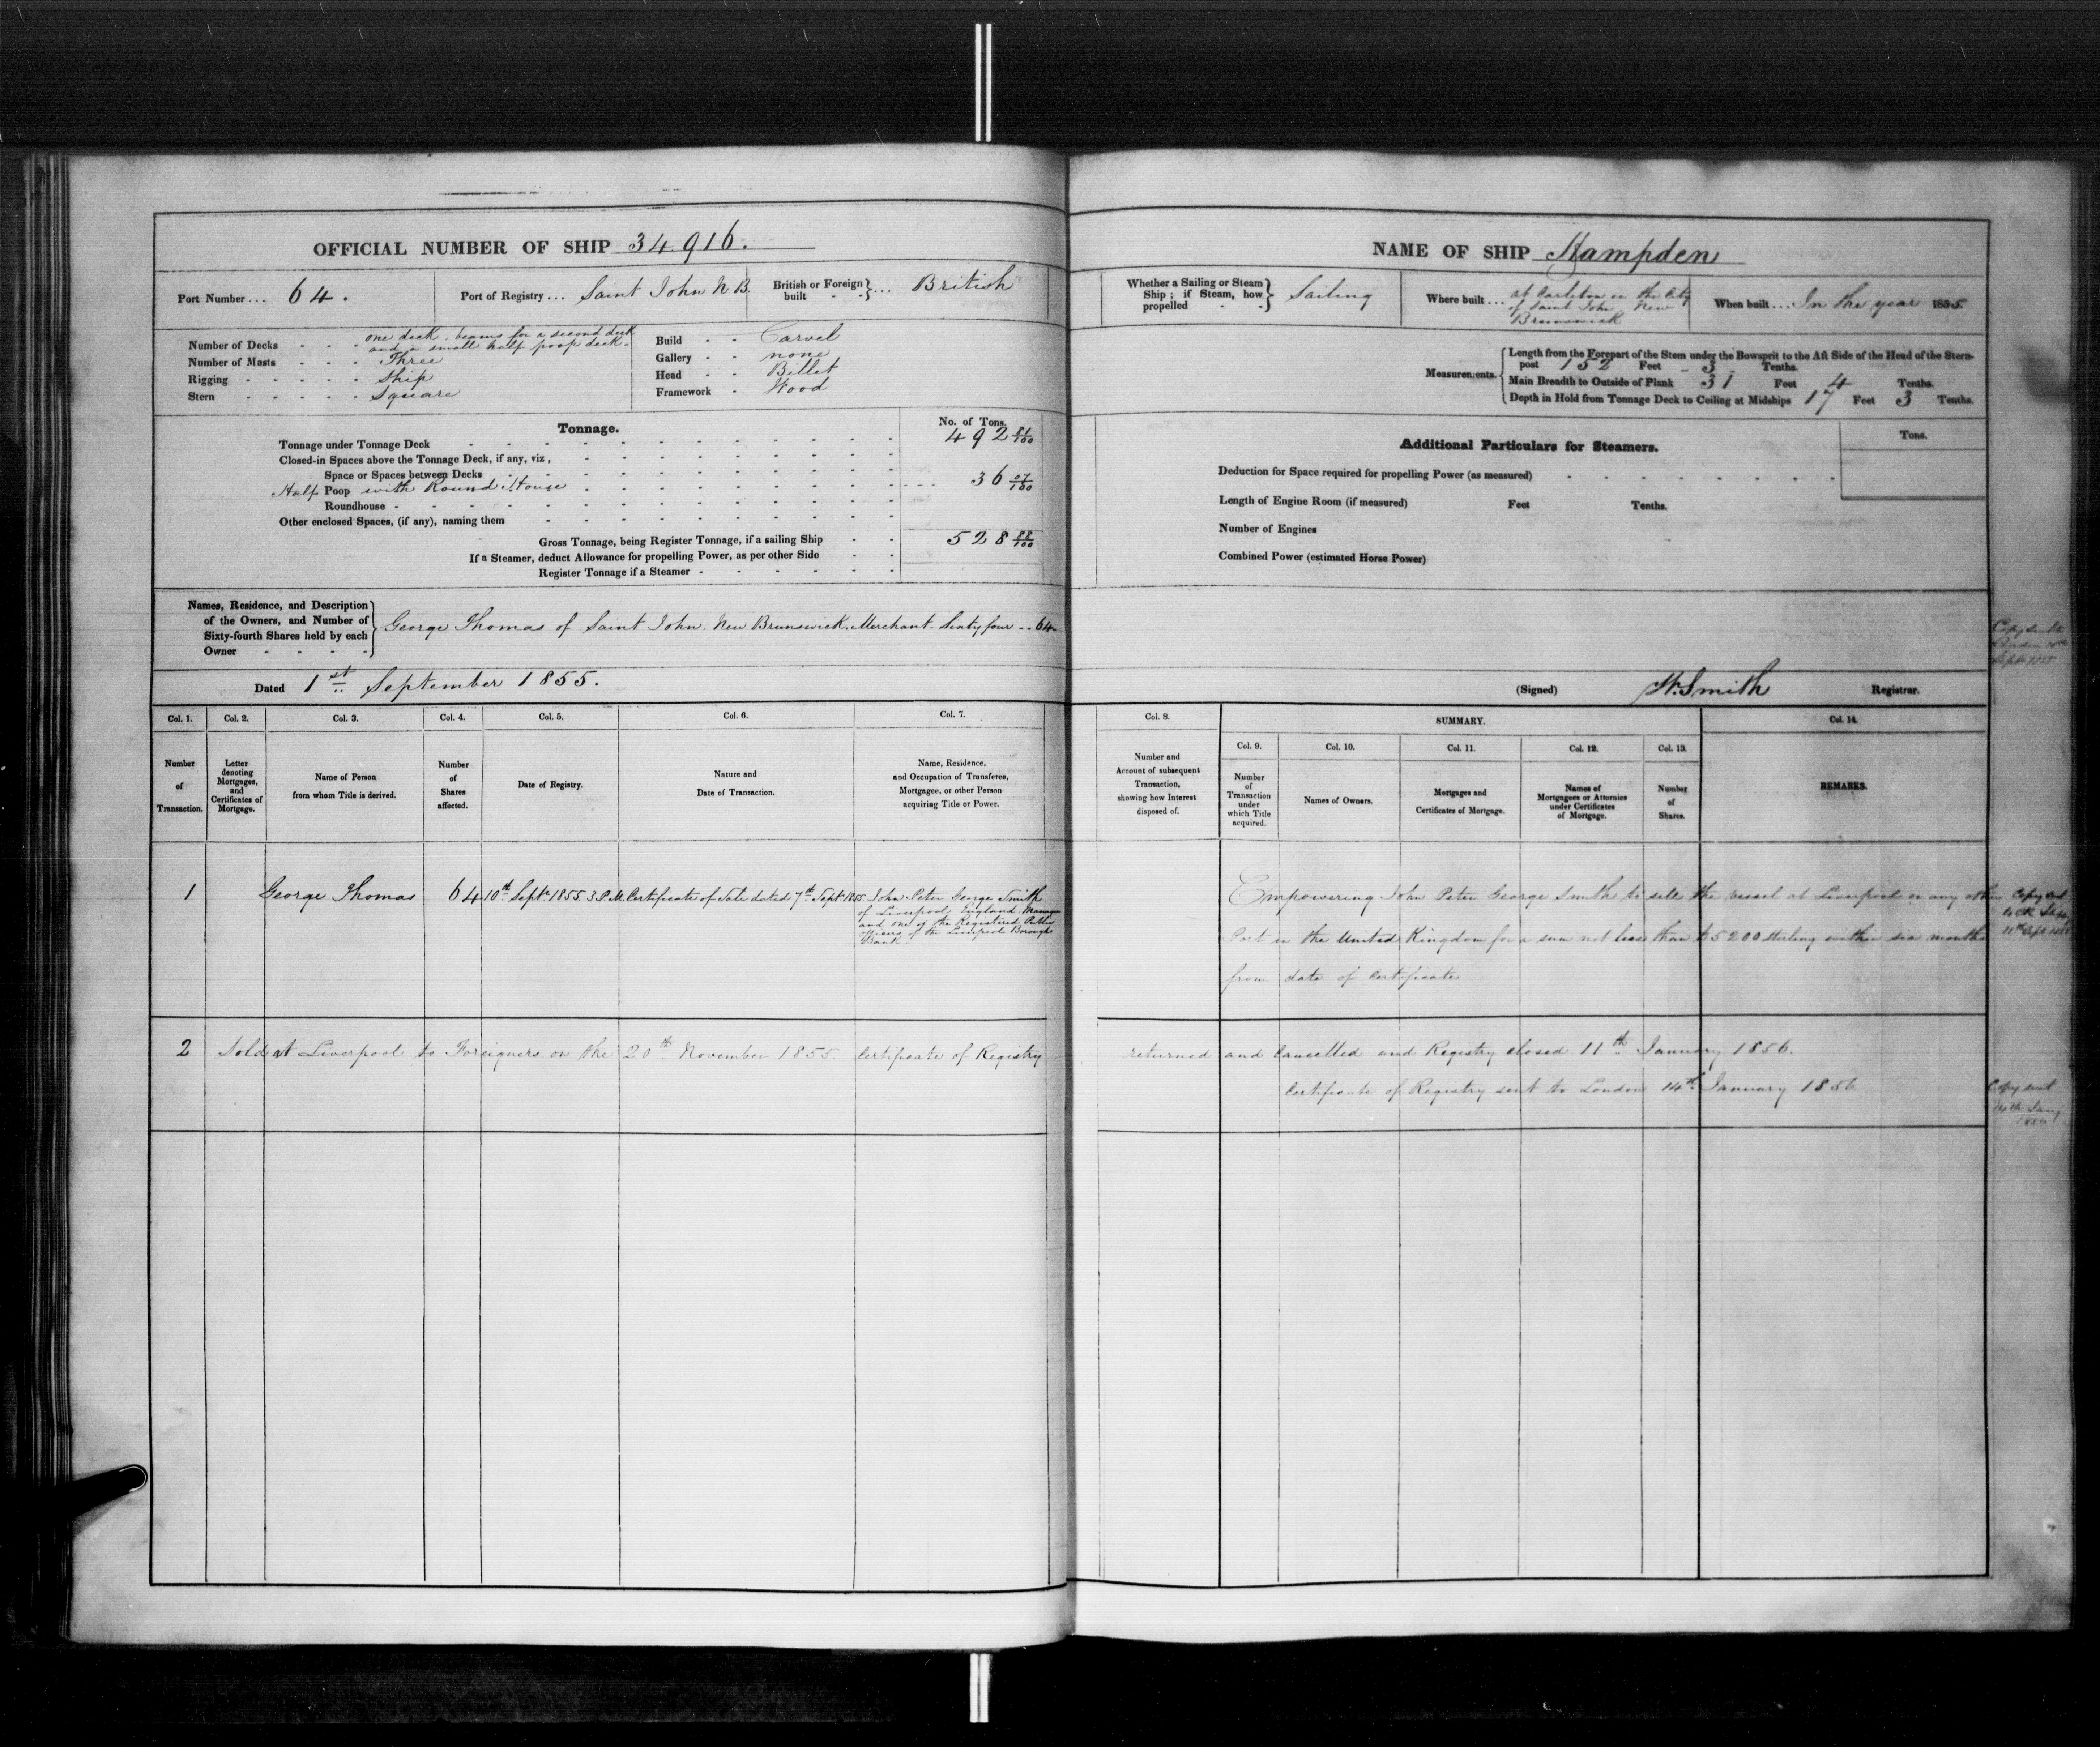 OFFICIAL NUMBER OF SHIP 34916.
Port Number... 64.
Port of Registry... Saint John N B.
British or Foreign built - - }... British
Number of Decks - - - one deck. beams for a second deck
and a small half poop deck.
Number of Masts - - - Three
Rigging - - - - - Ship
Stern - - - - - Square
Build - - Carvel
Gallery - - none
Head - - Billet
Framework - Wood
Tonnage.
No. of Tons.
Tonnage under Tonnage Deck 492 81/100
Closed-in Spaces above the Tonnage Deck, if any, viz,
Space or Spaces between Decks
Half Poop with Round House 36 07/100
Roundhouse
Other enclosed Spaces, (if any), naming them
Gross Tonnage, being Register Tonnage, if a sailing Ship 528 88/100
If a Steamer, deduct Allowance for propelling Power, as per other Side
Register Tonnage if a Steamer
Names, Residence, and Description
of the Owners, and Number of
Sixty-fourth Shares held by each
Owner
George Thomas of Saint John. New Brunswick. Merchant. Sixty four -- 64
Dated 1st September 1855.
Col. 1. Col. 2. Col. 3. Col. 4. Col. 5. Col. 6. Col. 7.
Number
of
Transaction.
Letter
denoting
Mortgages,
and
Certificates of
Mortgage.
Name of Person
from whom Title is derived.
Number
of
Shares
affected.
Date of Registry.
Nature and
Date of Transaction.
Name, Residence,
and Occupation of Transferee,
Mortgagee, or other Person
acquiring Title or Power.
1 George Thomas 64 10th Septr 1855 3 P.M. Certificate of Sale dated 7th Septr 1855 John Peter George Smith
of Liverpool England Manager
and one of the Registered Public
officers of the Liverpool Borough
Bank.
2 Sold at Liverpool to Foreigners on the 20th November 1855. Certificate of Registry
NAME OF SHIP Hampden
Whether a Sailing or Steam
Ship; if Steam, how
propelled - - } Sailing
Where built... at Carleton in the City
of Saint John New
Brunswick
When built... In the year 1855.
Measurements.
Length from the Forepart of the Stem under the Bowsprit to the Aft Side of the Head of the Stern-
post 152 Feet 3 Tenths.
Main Breadth to Outside of Plank 31 Feet 4 Tenths.
Depth in Hold from Tonnage Deck to Ceiling at Midships 17 Feet 3 Tenths.
Additional Particulars for Steamers.
Tons.
Deduction for Space required for propelling Power (as measured)
Length of Engine Room (if measured) Feet Tenths.
Number of Engines
Combined Power (estimated Horse Power)
Copy sent to
London
Septr 1855
(Signed) W. Smith Registrar.
Col. 8.
SUMMARY.
Col. 14.
Col. 9. Col. 10. Col. 11. Col. 12. Col. 13.
Number and
Account of subsequent
Transaction,
showing how Interest
disposed of.
Number
of
Transaction
under
which Title
acquired.
Names of Owners.
Mortgages and
Certificates of Mortgage.
Names of
Mortgagees or Attornies
under Certificates
of Mortgage.
Number
of
Shares.
REMARKS.
Empowering John Peter George Smith to sell the vessel at Liverpool or any other
Port in the United Kingdom for a sum not less than £5200 Sterling within six months
from date of Certificate
Copy sent
11th Sept 1855
returned and Cancelled and Registry closed 11th January 1856.
Certificate of Registry sent to London 14th January 1856
Copy sent
Jany
1856